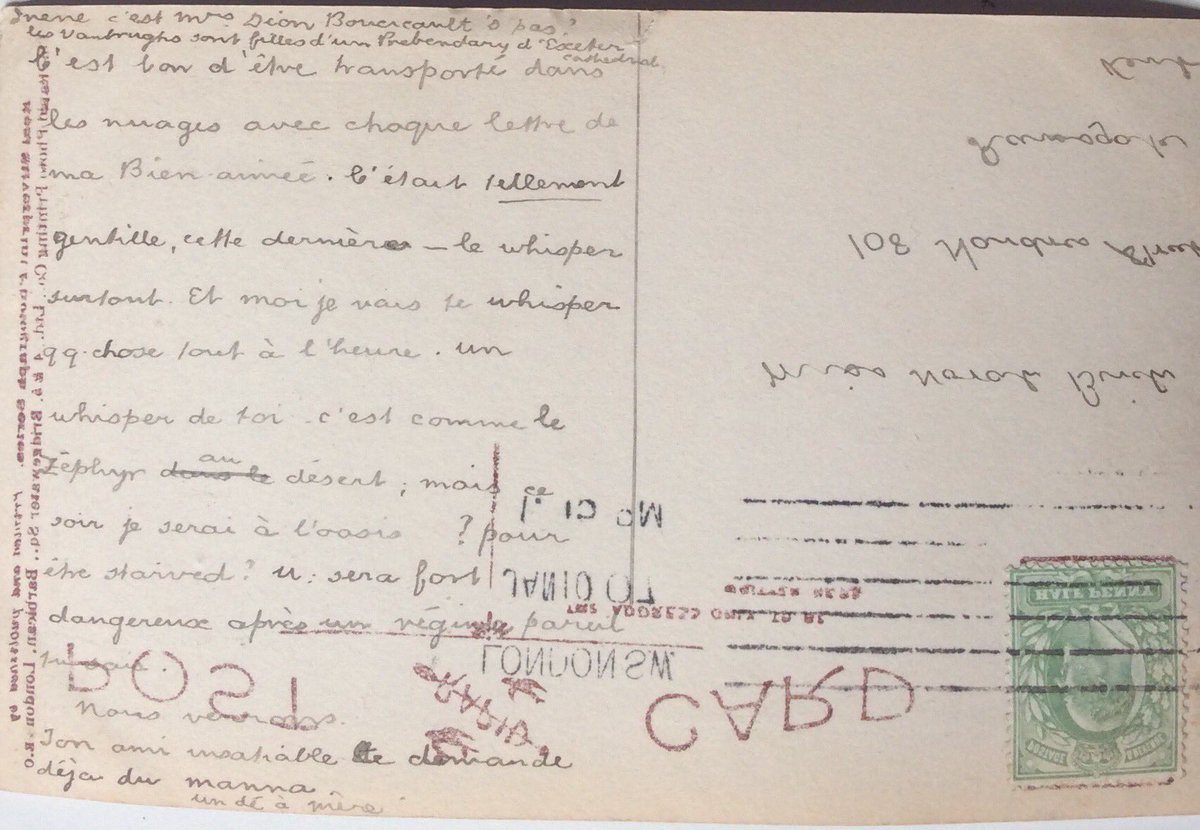 Irene c'est Mrs Dion Boucicault n'est pas?
les Vanbrughs sont filles d'un Prebendary d'Exeter
cathedral
C'est bon d'être transporté dans
les nuages avec chaque lettre de
ma Bien-aimée. C'était tellement
gentille, cette dernière — le whisper
surtout. Et moi je vais te whisper
qq. chose tout à l'heure. un
whisper de toi - c'est comme le
Zéphyr dans le au désert; mais ce
soir je serai à l'oasis ? pour
être starved? U. sera fort
dangereux après un régime pareil
tu sais.
Nous verrons.
Ton ami insatiable te demande
déja du manna
un dé à mère
POST CARD
THE ADDRESS ONLY TO BE
WRITTEN HERE
LONDON S.W.
Miss Norah
108
Ramsgate
Kent
HALF PENNY
POSTAGE